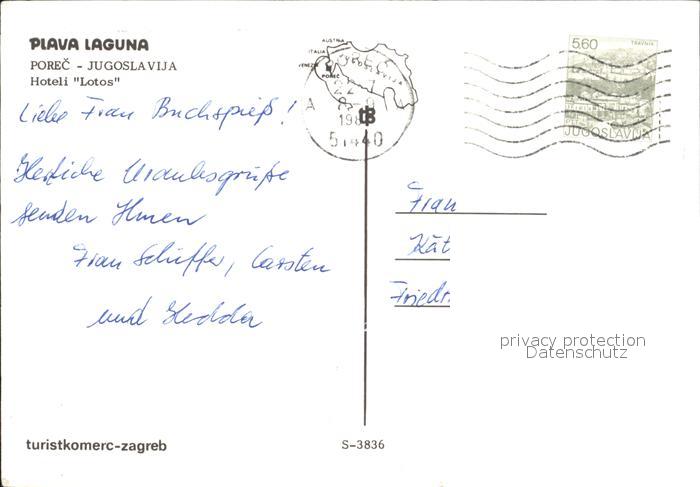 PLAVA LAGUNA
POREČ - JUGOSLAVIJA
Hoteli "Lotos"
Liebe Frau Buchspieß!
Herzliche Urlaubsgrüße
senden Ihnen
Frau Schiffer, Carsten
und Hedda
turistkomerc-zagreb
S-3836
AUSTRIA
ITALIA
VENEZIA
POREČ
51440
560
TRAVNIK
JUGOSLAVIJA
Frau
Kät
Friedr.
privacy protection
Datenschutz